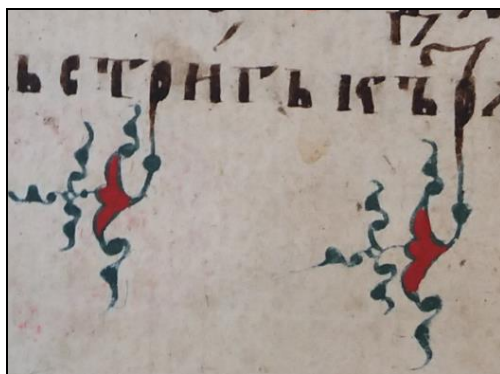 ьстри́гь кър